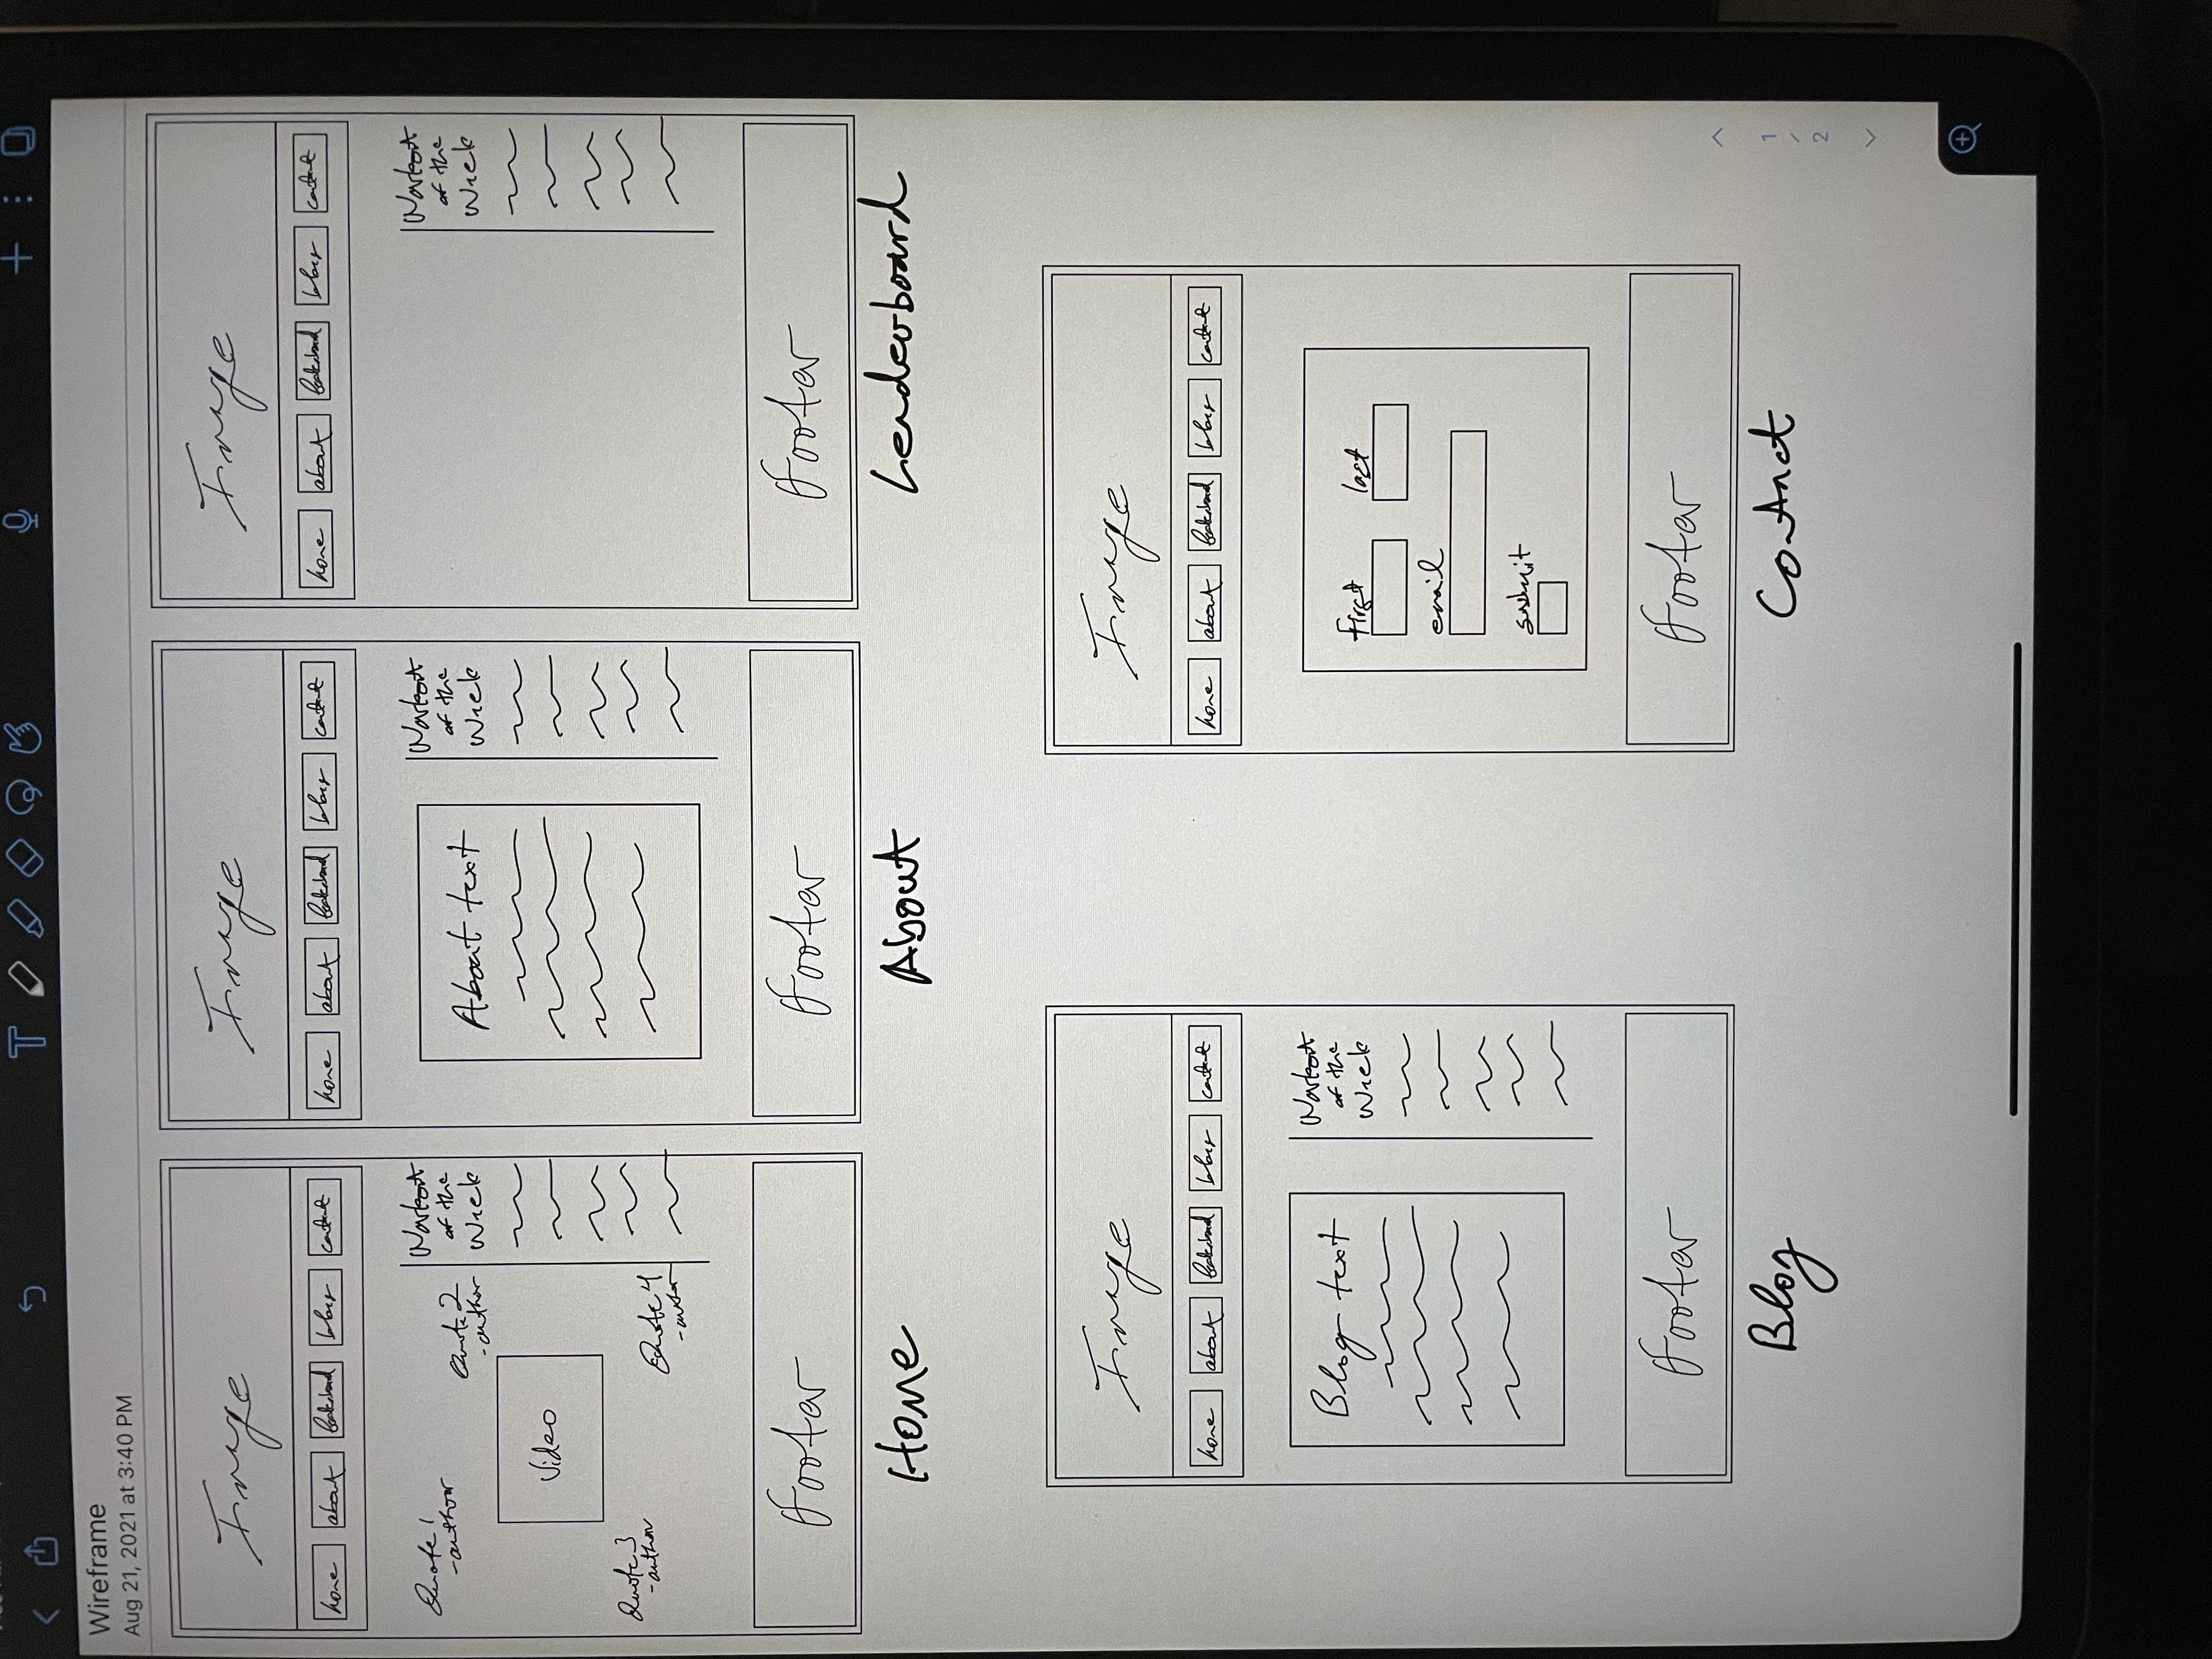 Wireframe
Aug 21, 2021 at 3:40 PM
Image
home about leaderboard blog contact
Quote 1
-author
Quote 2
-author
Video
Quote 3
-author
Quote 4
-author
Workout
of the
Week
Footer
Home
Image
home about leaderboard blog contact
About text
Workout
of the
Week
Footer
About
Image
home about leaderboard blog contact
Workout
of the
Week
Footer
Leaderboard
Image
home about leaderboard blog contact
Blog text
Workout
of the
Week
Footer
Blog
Image
home about leaderboard blog contact
first last
email
submit
Footer
Contact
1
/
2